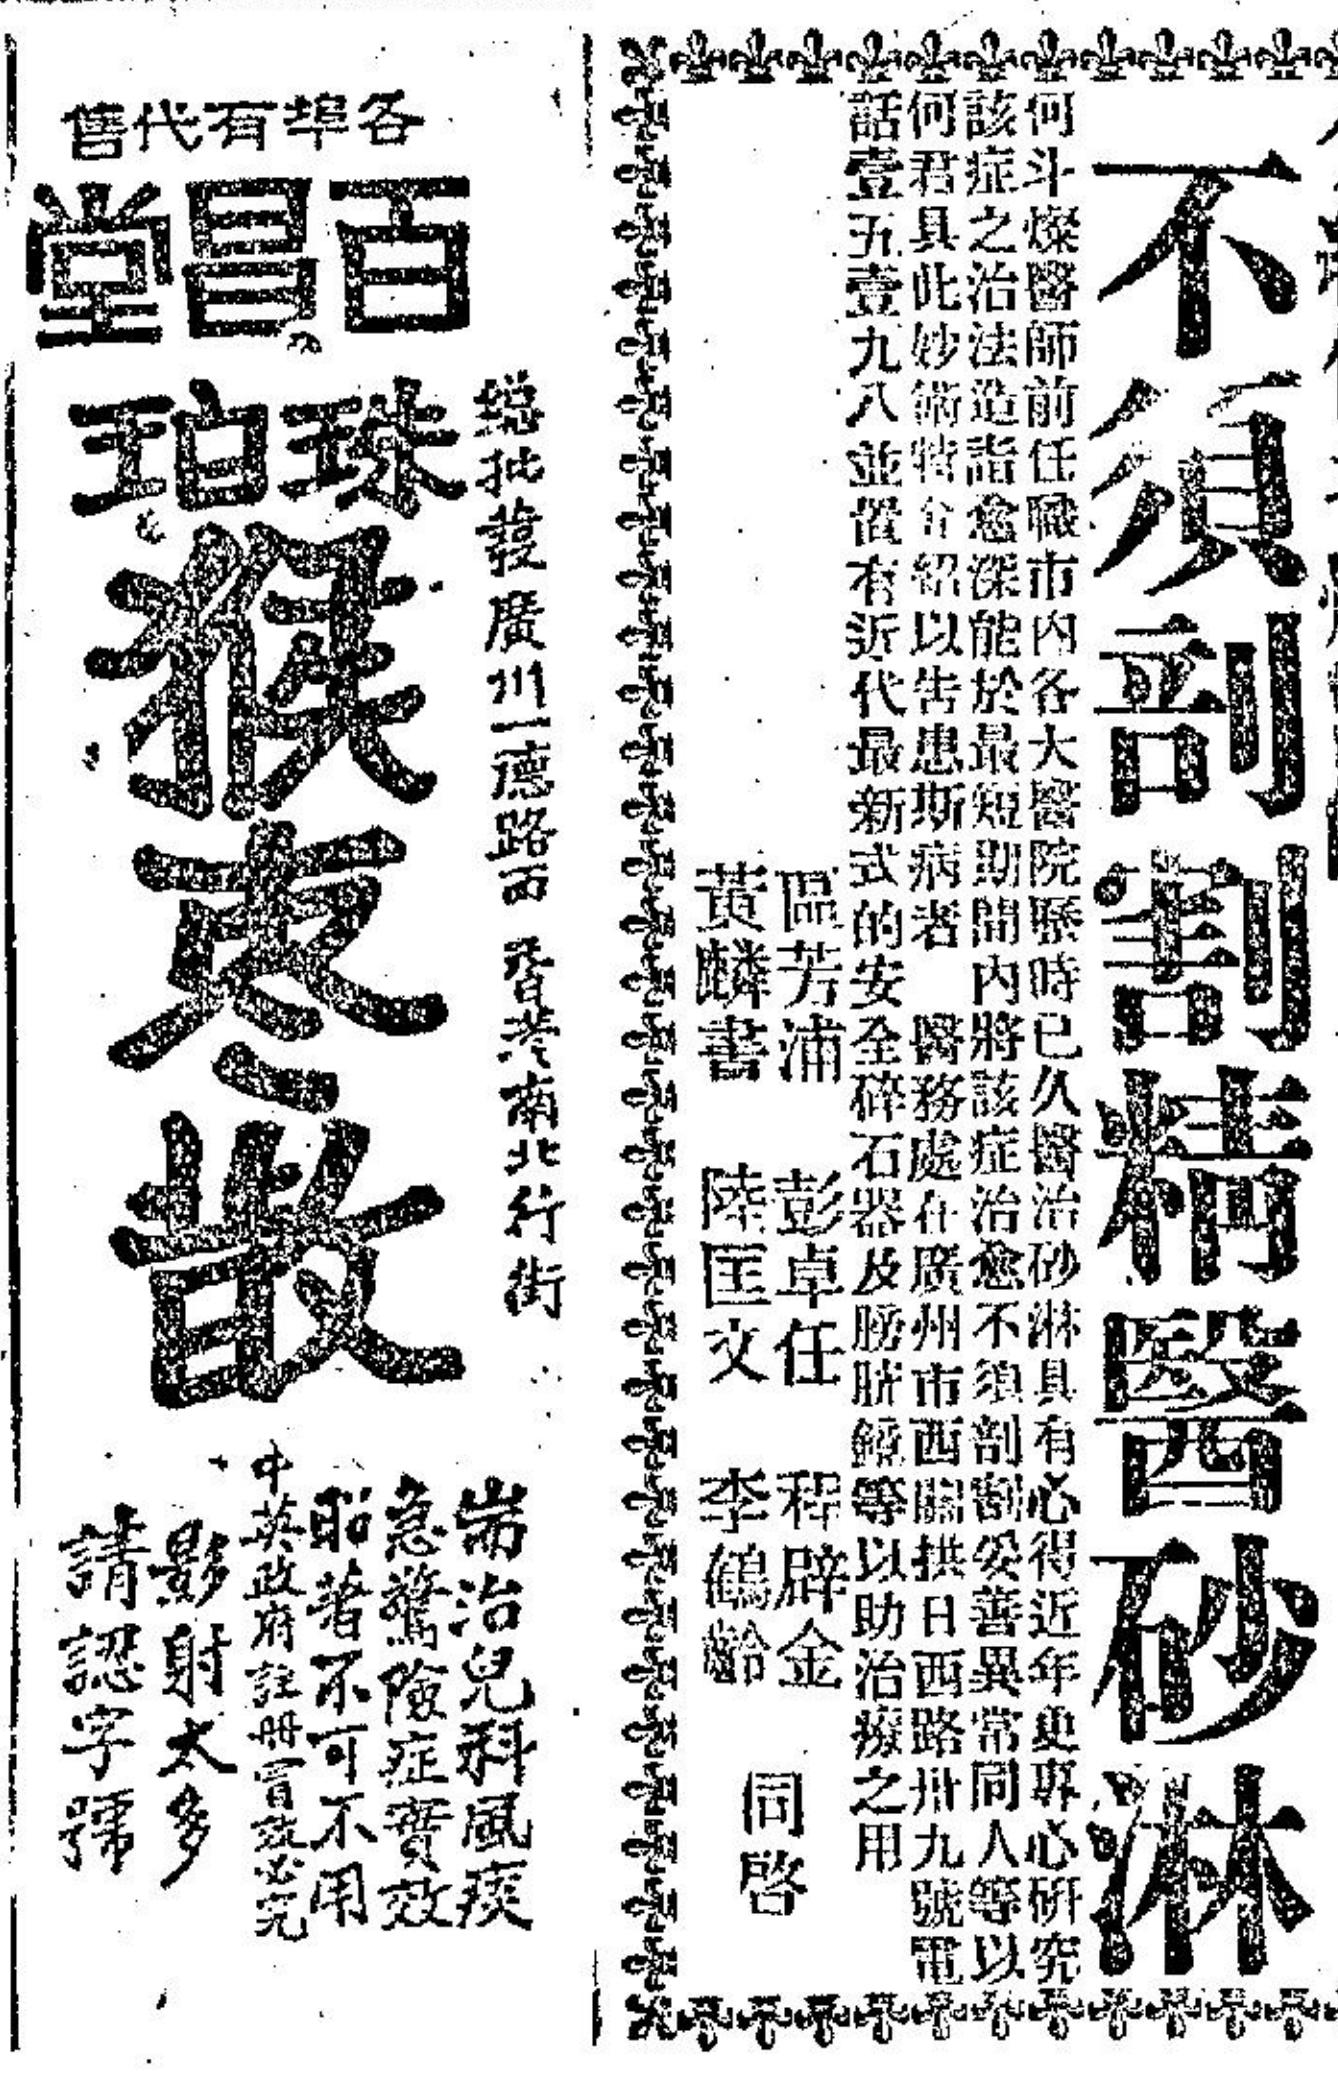 不須剖割精醫砂淋
何斗燦醫師前任職市內各大醫院歷時已久醫治砂淋具有心得近年更專心研究
該症之治法造詣愈深能於最短期間內將該症治愈不須剖割妥善異常同人等以
何君具此妙術特介紹以告患斯病者 醫務處在廣州市西關拱日西路卅九號電
話壹五壹九八並置有近代最新式的安全碎石器及膀胱鏡等以助治療之用
區芳浦 彭卓任 程辟金
黃麟書 陸匡文 李鶴齡
同啓
各埠有代售
百昌堂
總批發廣州一德路西 香港南北行街
珠珀
猴枣散
耑治兒科風痰
急驚險症實效
昭著不可不用
中英政府註册冒效必究
影射太多
請認字號